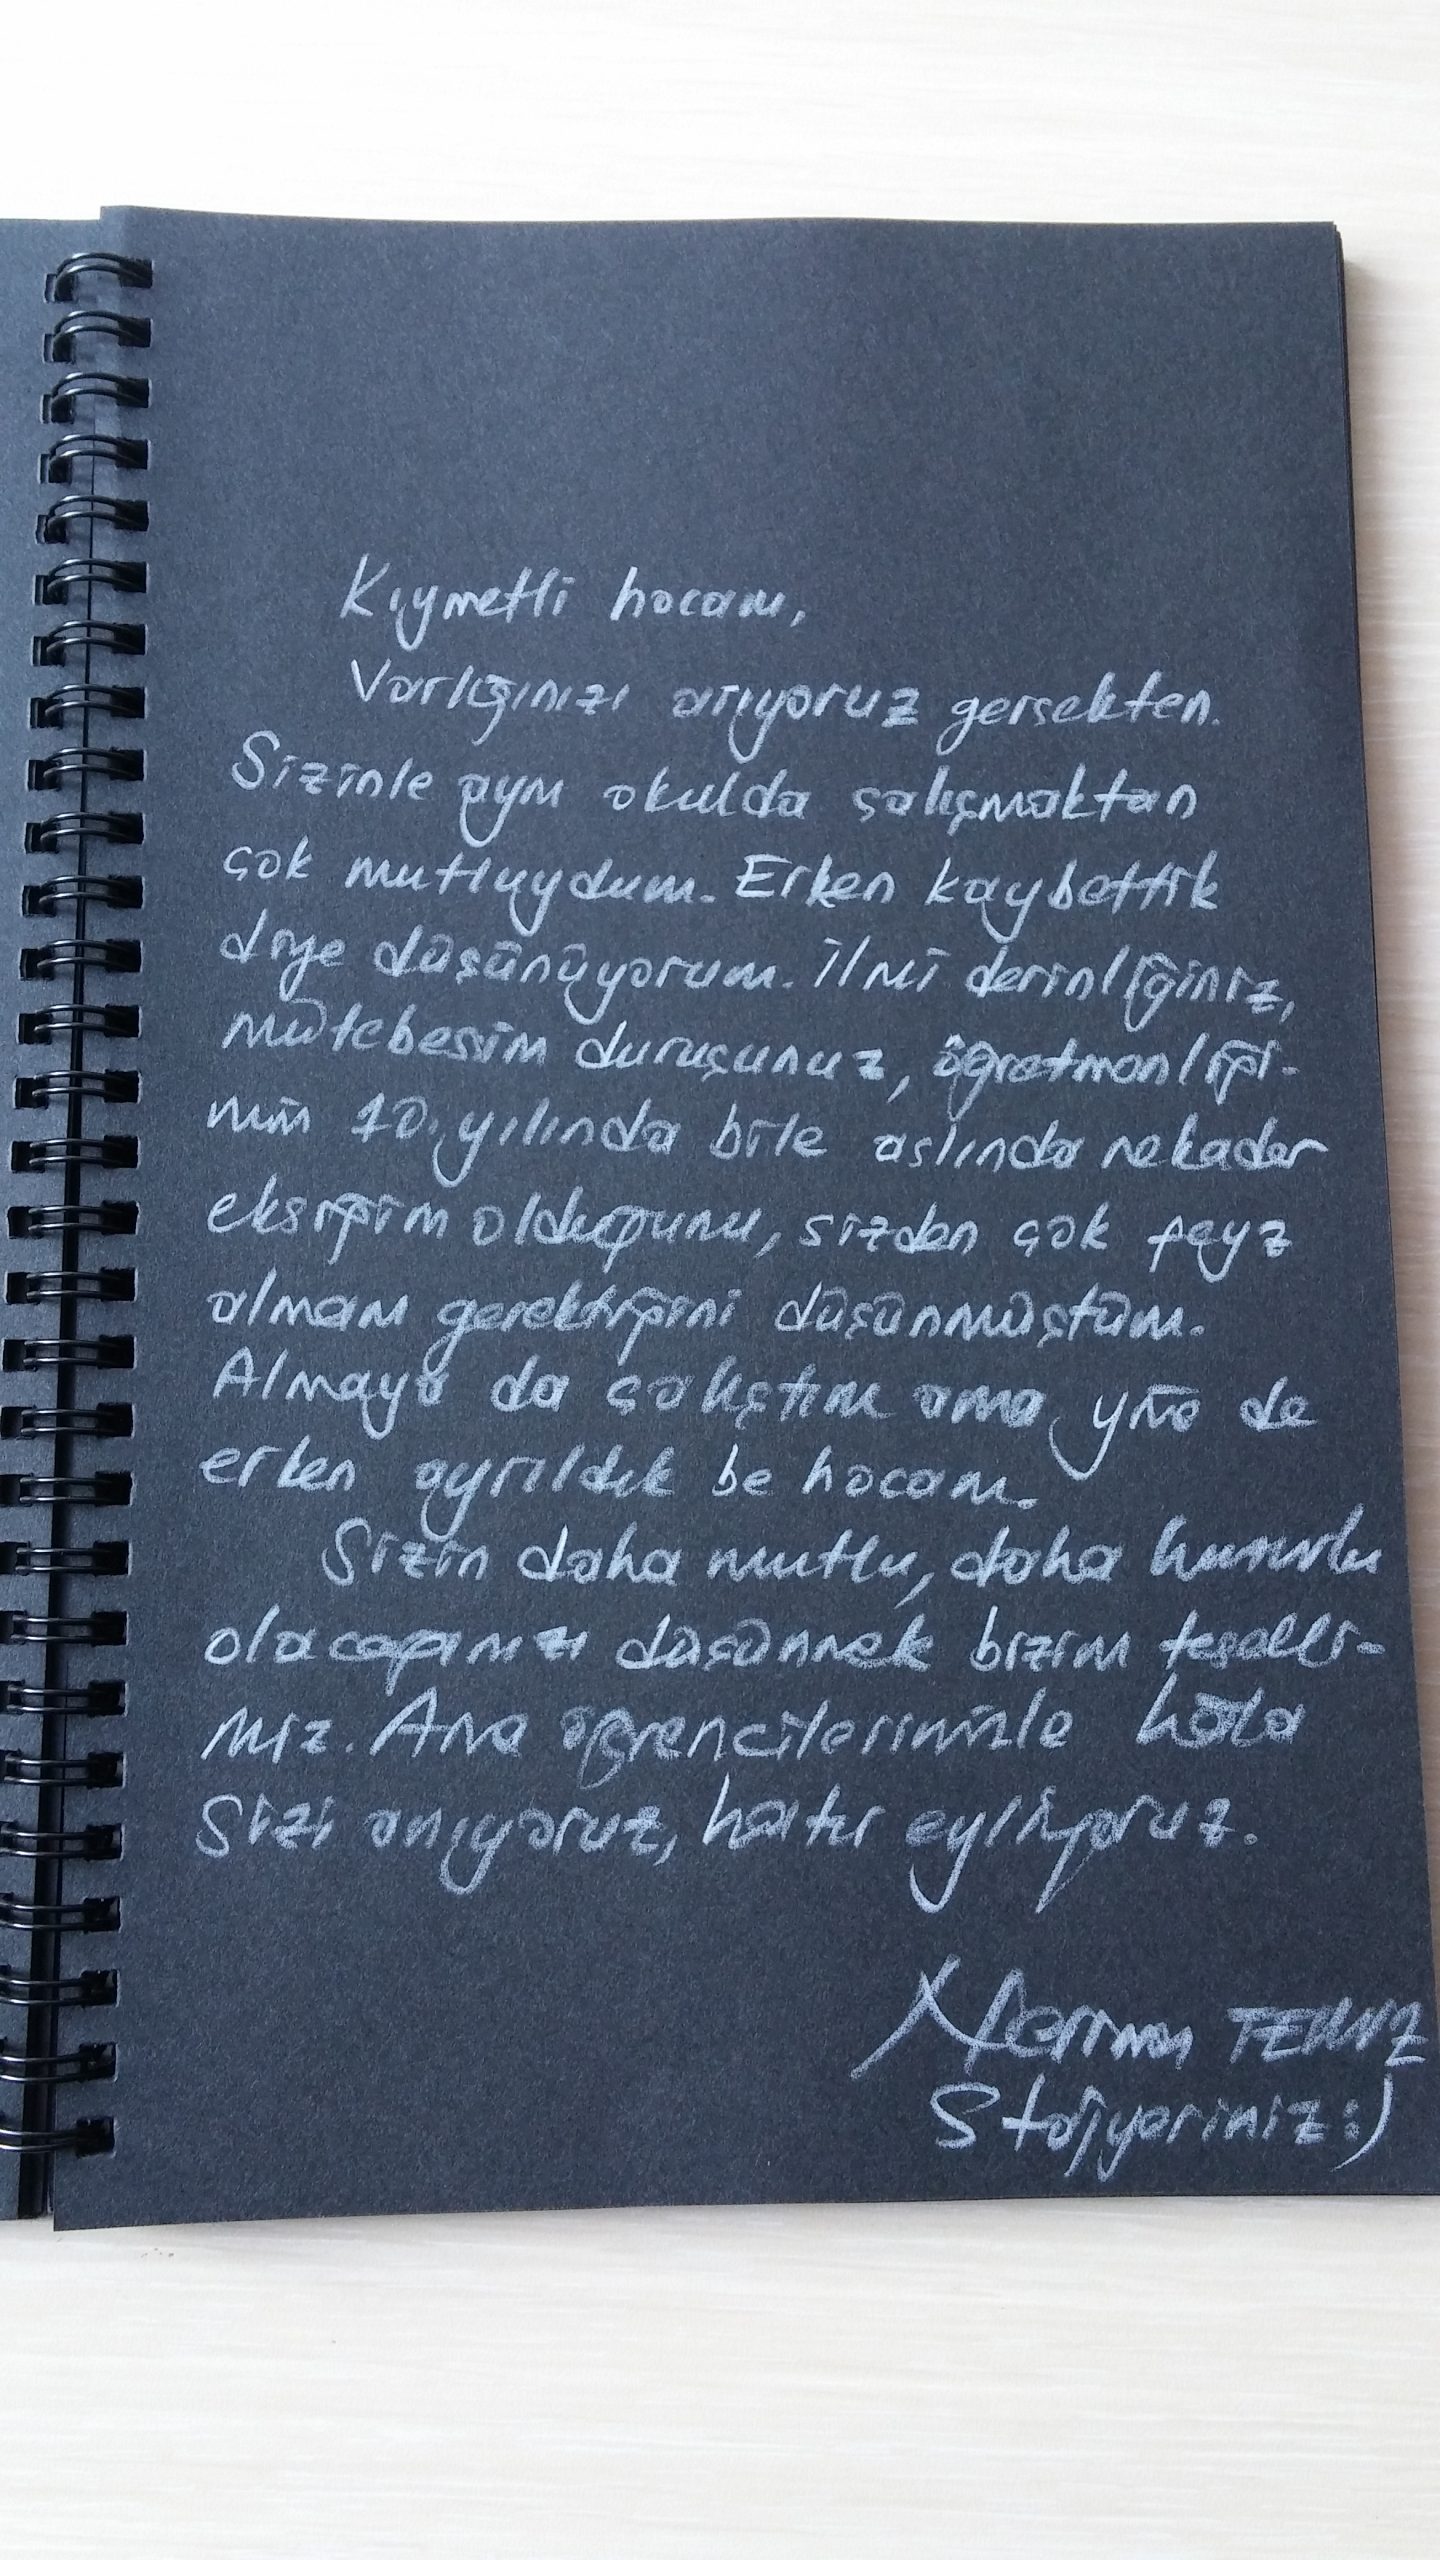 Kıymetli hocam,
Varlığınızı arıyoruz gerçekten.
Sizinle aynı okulda çalışmaktan
çok mutluydum. Erken kaybettik
diye düşünüyorum. İlmî derinliğiniz,
mütebessim duruşunuz, öğretmenliği-
min 10. yılında bile aslında nekadar
eksiğim olduğunu, sizden çok feyz
almam gerektiğini düşünmüştüm.
Almaya da çalıştım ama yine de
erken ayrıldık be hocam.
Sizin daha mutlu, daha huzurlu
olacağınızı düşünmek bizim teselli-
miz. Ama öğrencilerimizle hâlâ
sizi anıyoruz, hatır eyliyoruz.
Stajyeriniz :)